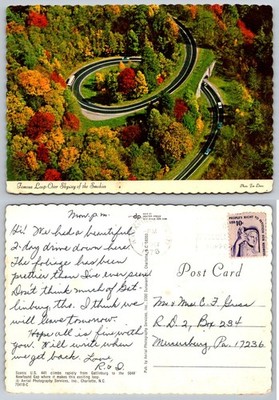 Famous Loop-Over Skyway of the Smokies
Mon. p.m.
Hi! We had a beautiful
2-day drive down here.
The foliage has been
prettier than I've ever seen.
Don't think much of Gat-
linburg, tho. I think we
will leave tomorrow.
Hope all is fine with
you. Will write when
we get back. Love,
R & D.
Post Card
Mr & Mrs C. F.
R. D. 2, Box 234
Mercersburg, Pa. 17236
Scenic U.S. 441 climbs rapidly from Gatlinburg to the
Newfound Gap where it makes this exciting loop.
Aerial Photography Services, Inc., Charlotte, N.C.